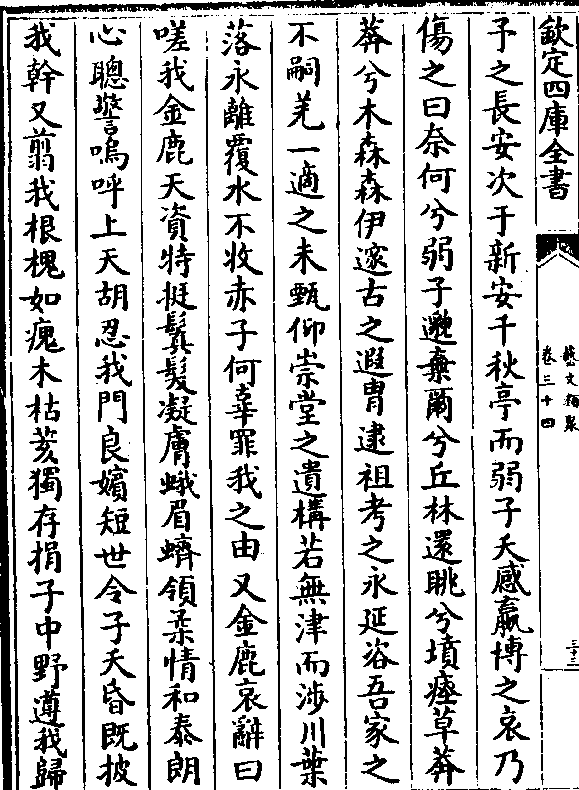 欽定四庫全書
藝文類聚
卷三十四
三十三
予之長安次于新安千秋亭而弱子夭感嬴博之哀乃
傷之曰奈何兮弱子邈棄爾兮丘林還眺兮墳瘞草莽
莽兮木森森伊邃古之遐胄逮祖考之永延咨吾家之
不嗣羌一適之未甄仰崇堂之遺構若無津而涉川葉
落永離覆水不收赤子何辜罪我之由又金鹿哀辭曰
嗟我金鹿天資特挺鬒髮凝膚蛾眉蠐領柔情和泰朗
心聰警嗚呼上天胡忍我門良嬪短世令子夭昏既披
我幹又翦我根槐如瘣木枯荄獨存捐子中野遵我歸